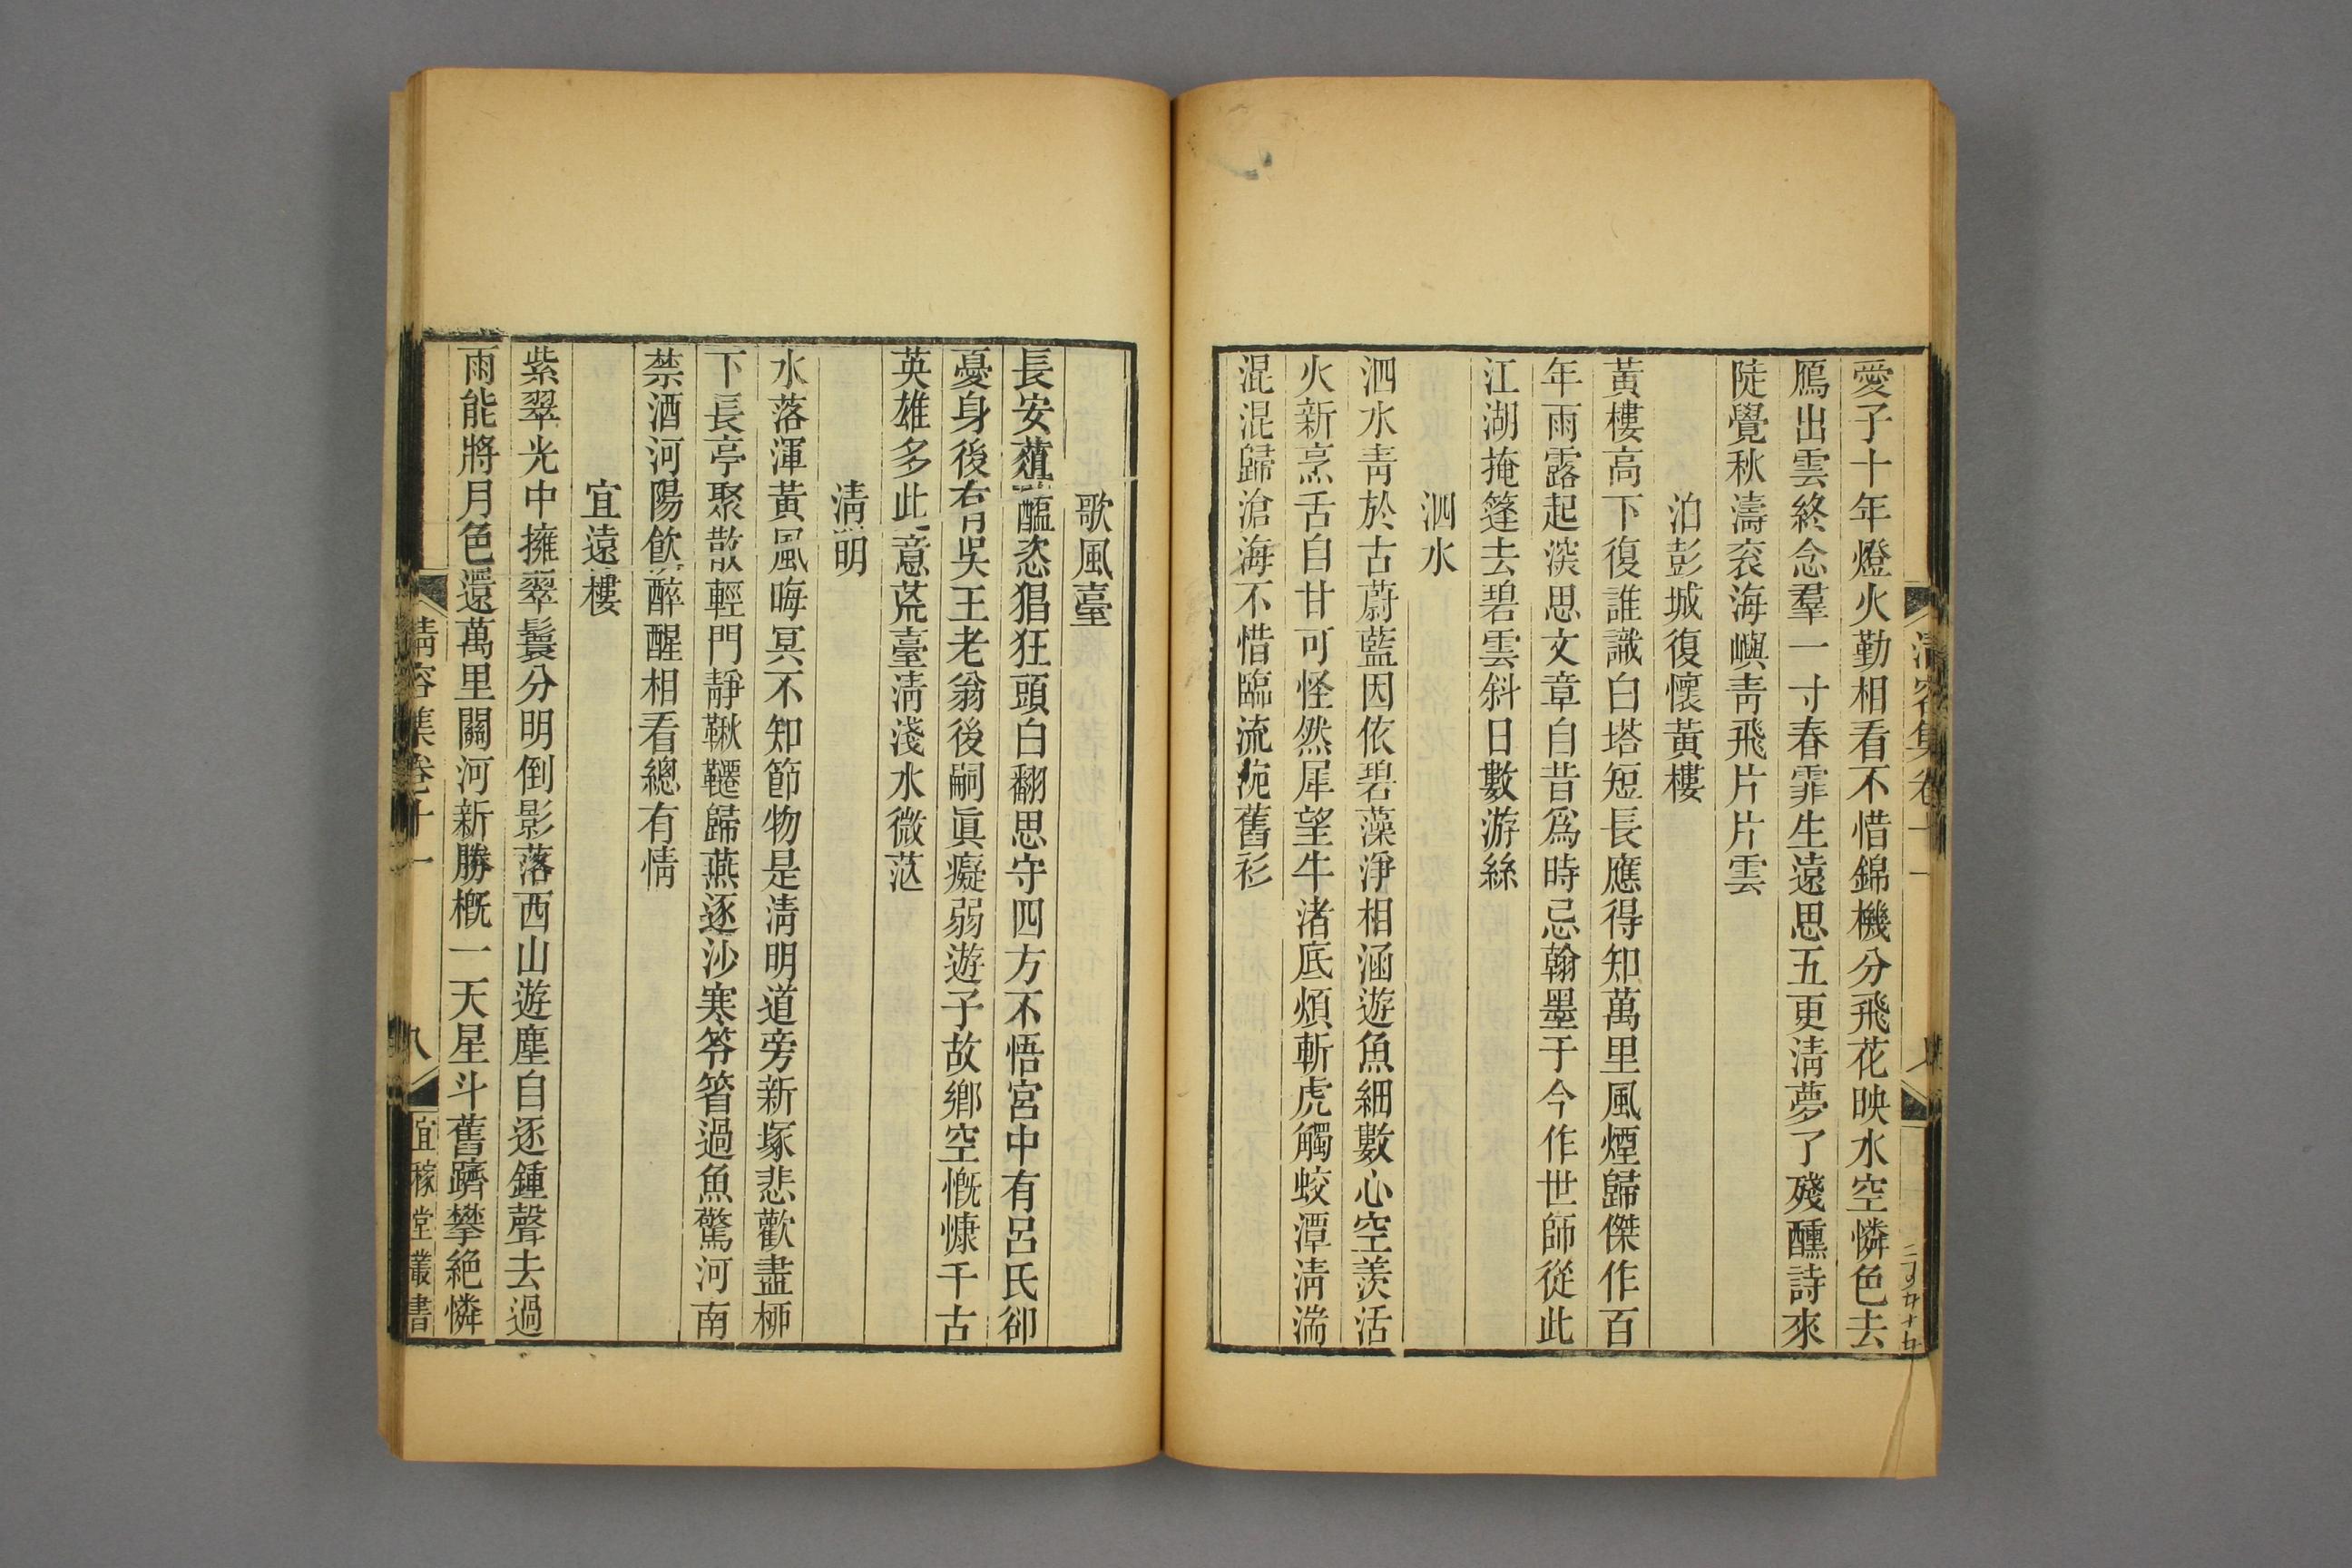 愛子十年燈火勤相看不惜錦機分飛花映水空憐色去
鴈出雲終念羣一寸春霏生遠思五更淸夢了殘醺詩來
陡覺秋濤袞海嶼靑飛片片雲
泊彭城復懷黃樓
黃樓高下復誰識白塔短長應得知萬里風煙歸傑作百
年雨露起深思文章自昔爲時忌翰墨于今作世師從此
江湖掩篷去碧雲斜日數游絲
泗水
泗水靑於古蔚藍因依碧藻淨相涵遊魚細數心空羨活
火新烹舌自甘可怪然犀望牛渚底煩斬虎觸蛟潭淸湍
混混歸滄海不惜臨流浣舊衫
歌風臺
長安葅醢恣猖狂頭白翻思守四方不悟宮中有呂氏卻
憂身後有吳王老翁後嗣眞癡弱遊子故鄉空慨慷千古
英雄多此意荒臺淸淺水微茫
淸明
水落渾黃風晦冥不知節物是淸明道旁新塚悲歡盡柳
下長亭聚散輕門靜鞦韆歸燕逐沙寒笭箵過魚驚河南
禁酒河陽飮醉醒相看總有情
宜遠樓
紫翠光中擁翠鬟分明倒影落西山遊塵自逐鍾聲去過
雨能將月色還萬里關河新勝槪一天星斗舊躋攀絕憐
淸容集卷十一
八
宜稼堂叢書